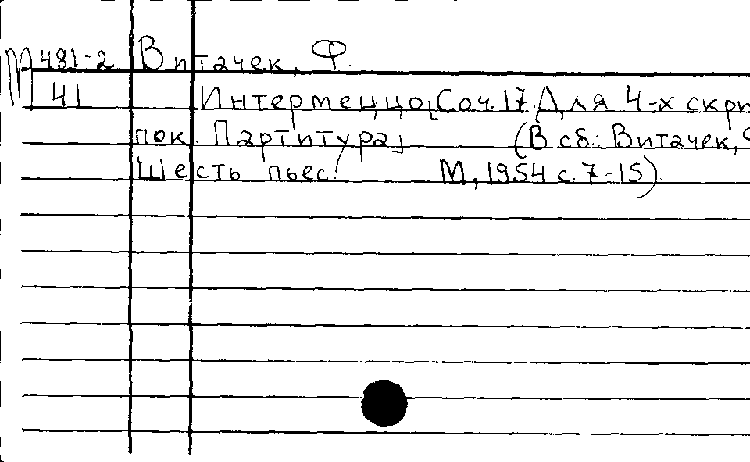 М 481-2 Витачек, Ф.
41 Интермеццо, Соч. 17. Для 4-х скри
пок. Партитура, (В сб.: Витачек, Ф
Шесть пьес. М., 1954 с. 7-15).